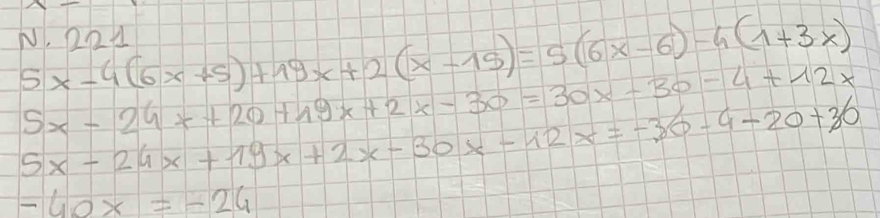 N. 221
5x-4(6x+5)+19x+2(x-15)=5(6x-6)-4(1+3x)
5x-24x+20+19x+2x-30=30x-30-4+12x
5x-24x+19x+2x-30x-12x=-36-4-20+30
-40x=-24